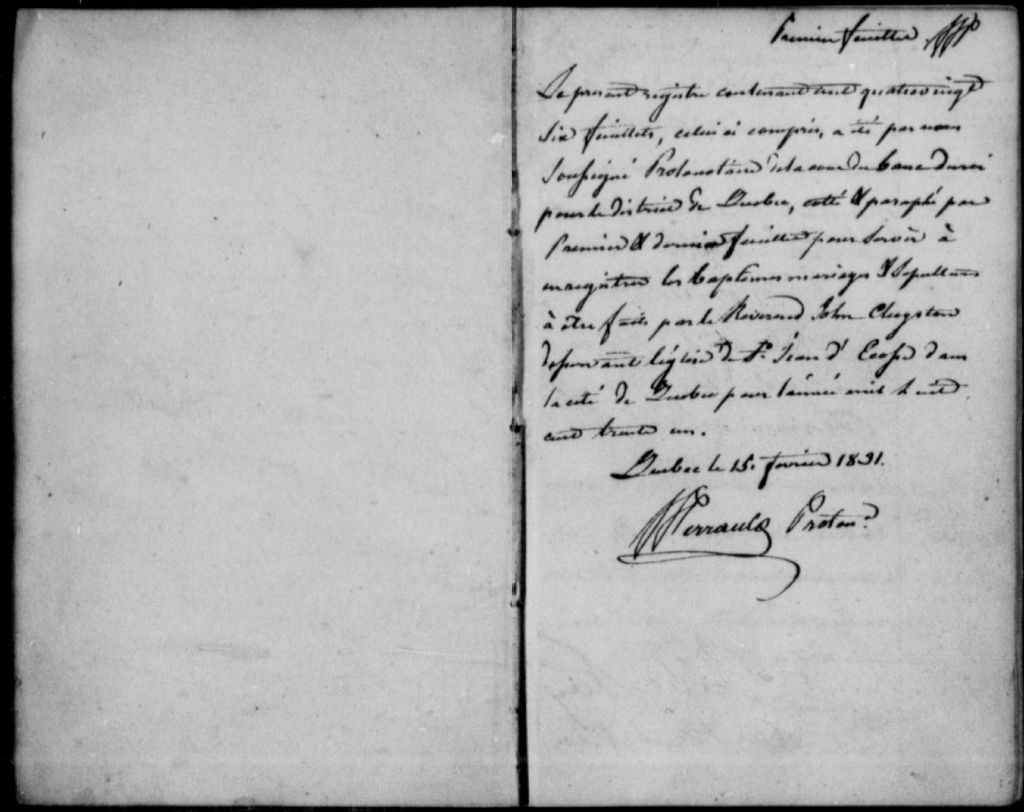 Premier feuillet
Le present registre contenant cent quatrevingt
Six feuillets, celui ci compris, a été par nous
Soussigné Protonotaire de la cour du banc du roi
pour le district de Quebec, coté & paraphé par
Premier & dernier feuillet pour servir à
enregistrer les baptemes mariages & Sepultures
à être faits par le Reverend John Clugston
desservant l'église de St. Jean d' Ecosse dans
la cité de Quebec pour l'année mil huit
cent trente un.
Quebec le 15. fevrier 1831.
Perrault Proton.